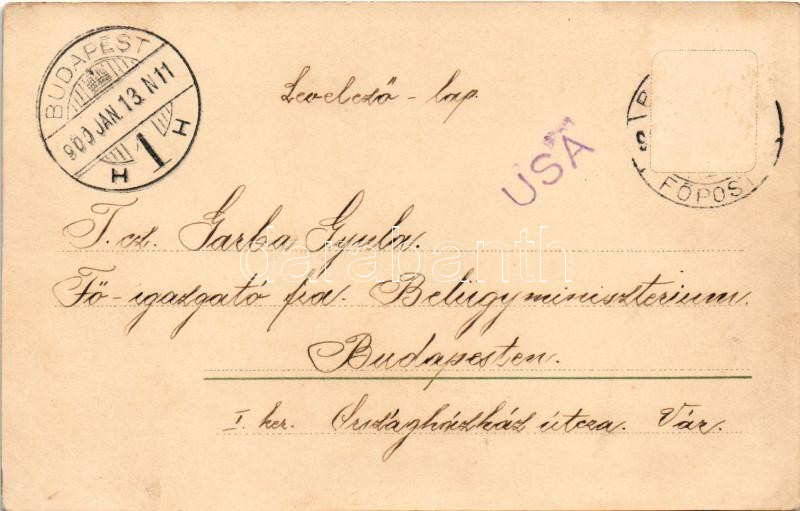 BUDAPEST
900 JAN. 13. N 11
H 1 H
Levelező - lap.
USA
FŐPOS
T. cz. Garba Gyula.
darabanth
Fő-igazgató fia. Belügyminiszterium.
Budapesten.
I. ker. Országházház útcza. Vár.